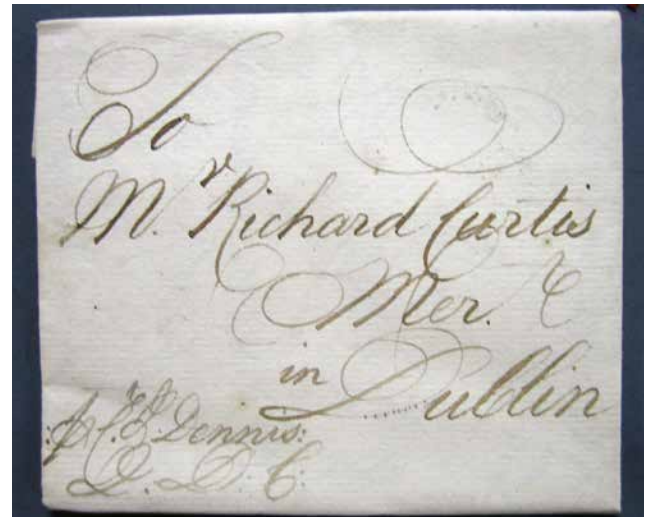 To
Mr. Richard Curtis
Mer. t
in Dublin
Dennis:
D. C: